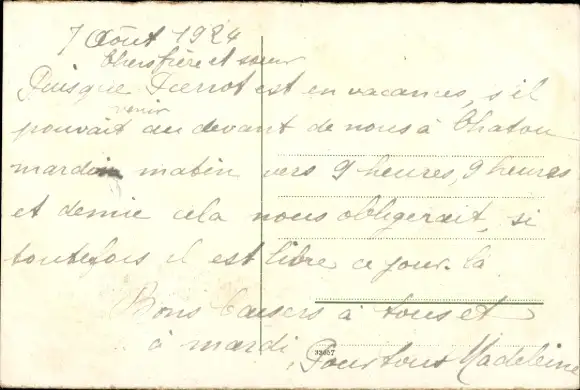 7 Août 1924
Chers frère et sœur
Puisque Pierrot est en vacances, s'il
venir
pouvait au devant de nous à Chatou
mardi matin vers 9 heures, 9 heures
et demie cela nous obligerait, si
toutefois il est libre ce jour-là
Bons baisers à tous et
à mardi, Pour tous Madeleine
33957